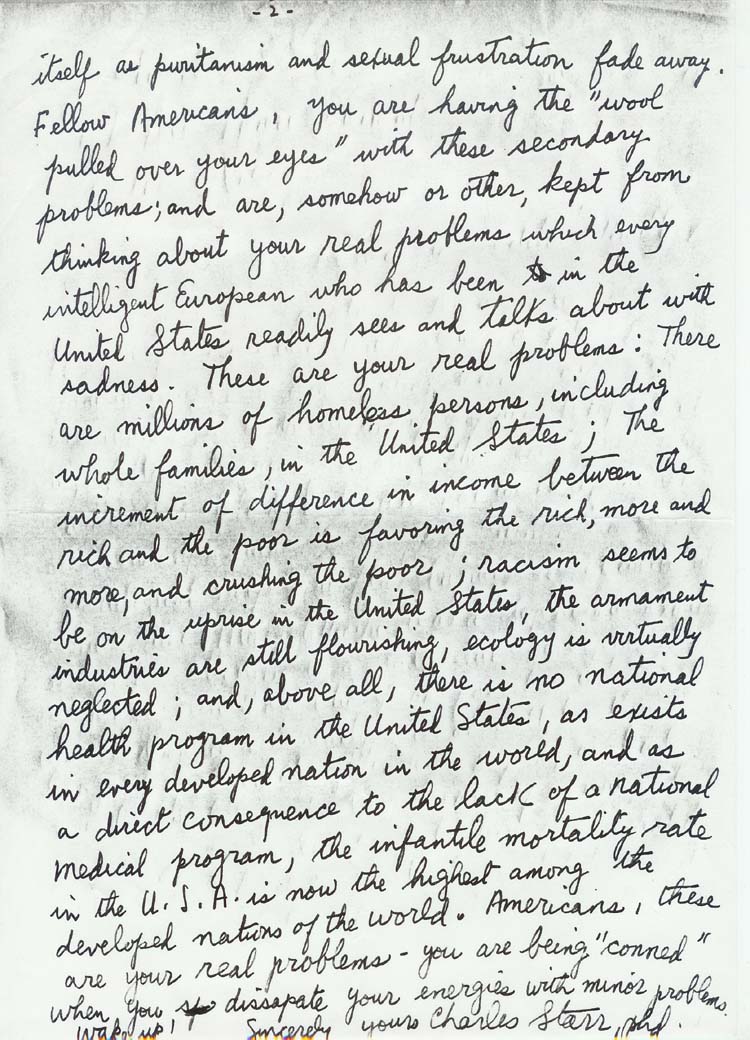 - 2 -
itself as puritanism and sexual frustration fade away.
Fellow Americans, you are having the "wool
pulled over your eyes" with these secondary
problems; and are, somehow or other, kept from
thinking about your real problems which every
intelligent European who has been in the
United States readily sees and talks about with
sadness. These are your real problems: There
are millions of homeless persons, including
whole families, in the United States; The
increment of difference in income between the
rich and the poor is favoring the rich, more and
more, and crushing the poor; racism seems to
be on the uprise in the United States, the armament
industries are still flourishing, ecology is virtually
neglected; and, above all, there is no national
health program in the United States, as exists
in every developed nation in the world, and as
a direct consequence to the lack of a national
medical program, the infantile mortality rate
in the U.S.A. is now the highest among the
developed nations of the world. Americans, these
are your real problems - you are being "conned"
when you dissapate your energies with minor problems.
Wake up! Sincerely yours Charles Starr, phd.